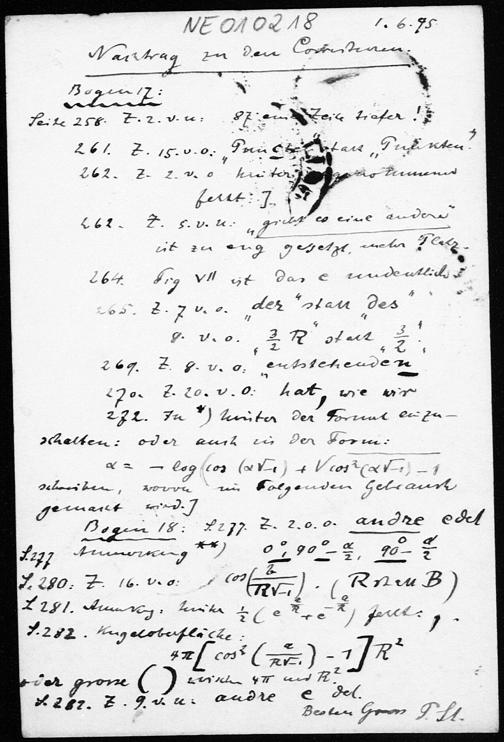 NE010218
1.6.95
Nachtrag zu den Correcturen.
Bogen 17:
Seite 258. Z. 2. v. u: 87 eine Zeile tiefer!
261. Z. 15. v. o: „Puncten“ statt „Punkten“
262. Z. 2. v. o hinter
fehlt: ].
262. Z. 5. v. u: „giebt es eine andere“
ist zu eng gesetzt, mehr Platz.
264. Fig VII ist das c undeutlich
265. Z. 7 v. o. „der“ statt „des“
8. v. o. „3/2 R“ statt „3/2“
269. Z. 8. v. o: „entstehenden
270. Z. 20. v. o: hat, wie wir
272. In *) hinter der Formel einzu-
schalten: oder auch in der Form:
a = - log (cos (a√-1) + √cos²(a√-1) - 1
schreiben, wovon im Folgenden Gebrauch
gemacht wird.]
Bogen 18: S. 277. Z. 2. o. o. andre c del
S. 277 Anmerkung **) 0°, 90° - a/2, 90 - a/2
S. 280: Z. 16. v. o: cos (b/R√-1) . (R statt B)
S. 281. Anmkg: hinter 1/2 (e^{a/R} + e^{-a/R}) fehlt: ,
S. 282. Kugeloberfläche:
4π [cos² (a/R√-1) - 1] R²
oder grosse ( ) zwischen 4π und R²
S. 282. Z. 9. v. u: andre c del.
Besten Gruss P. St.